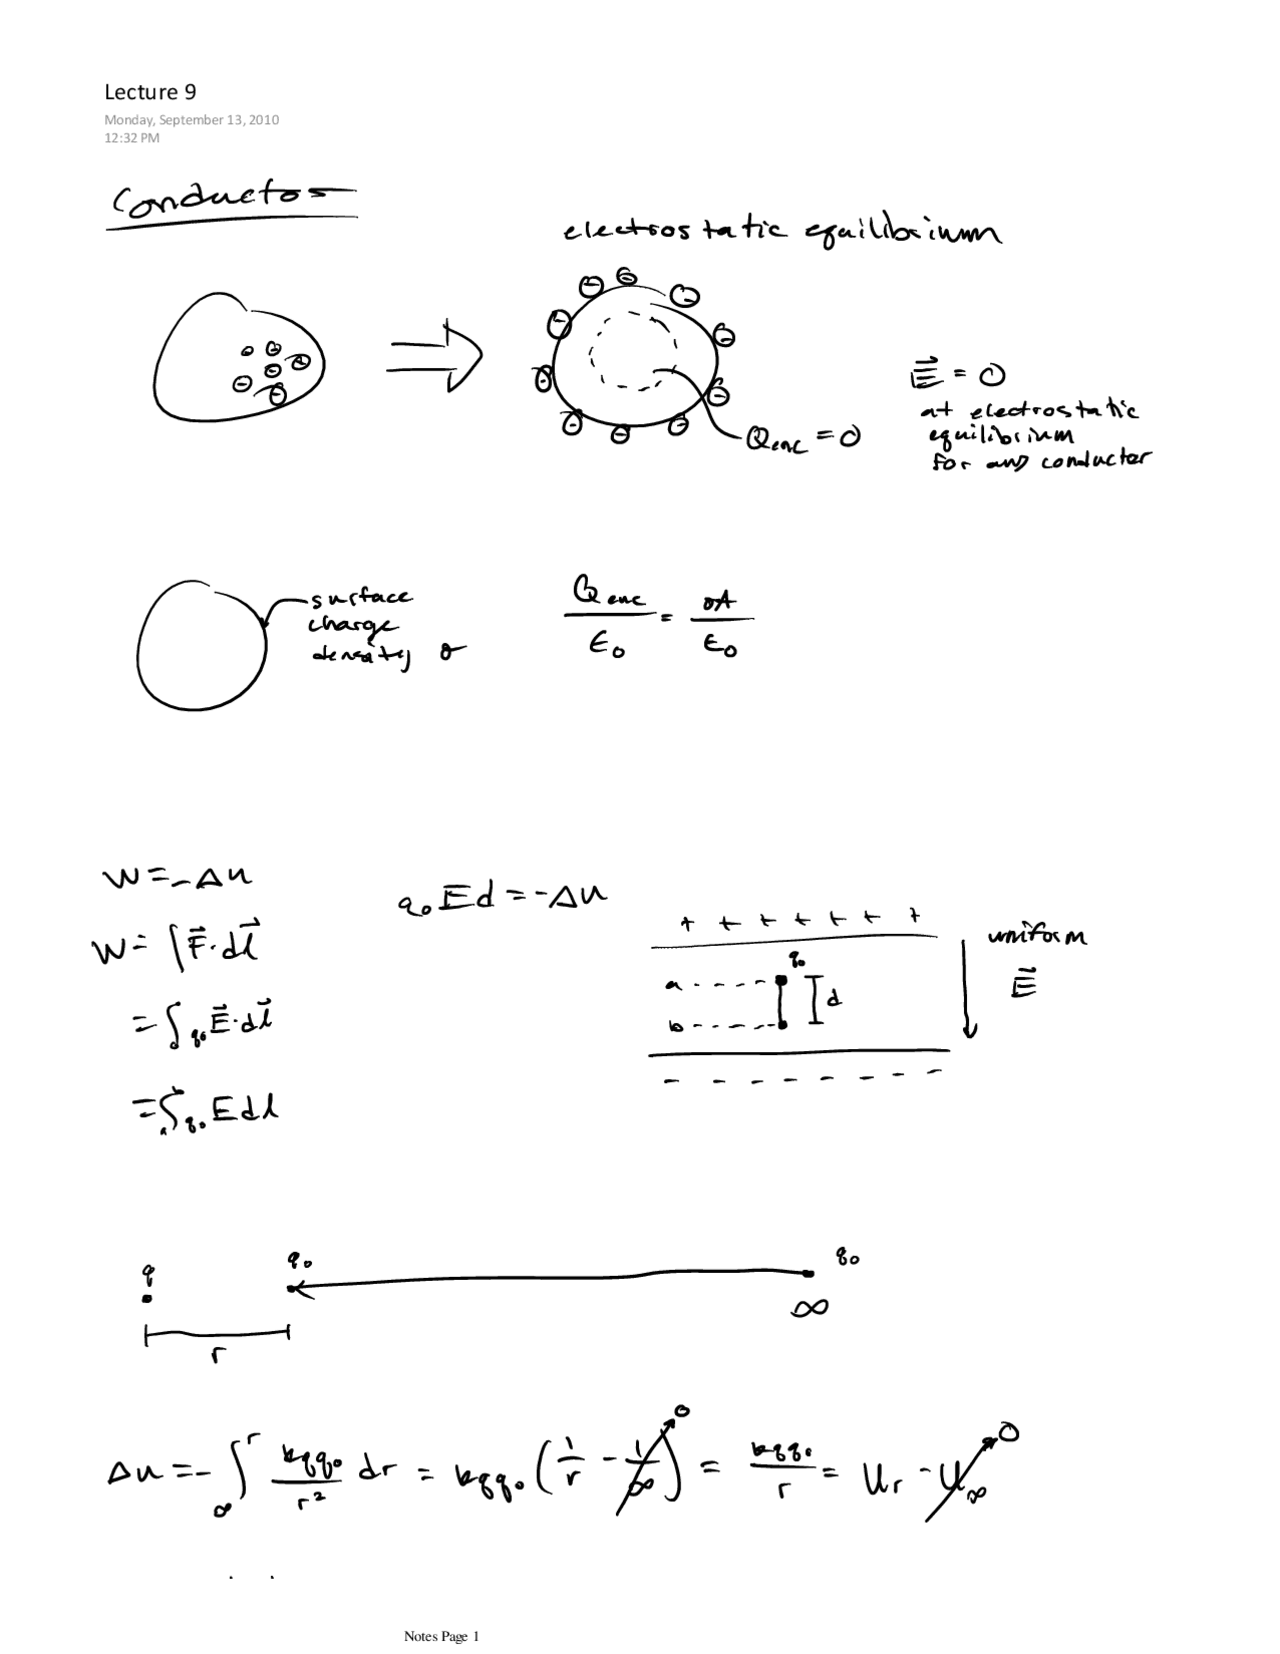 Lecture 9
Monday, September 13, 2010
12:32 PM
Conductors
electrostatic equilibrium
Q_enc = 0
E⃗ = 0
at electrostatic
equilibrium
for any conductor
surface
charge
density σ
Q_enc / ε₀ = σA / ε₀
W = -ΔU
q₀Ed = -ΔU
W = ∫F⃗·dl⃗
= ∫q₀E⃗·dl⃗
= ∫ₐᵇ q₀ E dl
+ + + + + + +
q₀
a
d
b
- - - - - - - -
uniform
E⃗
q
q₀
q₀
∞
r
ΔU = -∫_∞^r kqq₀/r² dr = kqq₀ (1/r - 1/∞ → 0) = kqq₀/r = U_r - U_∞ → 0
Notes Page 1